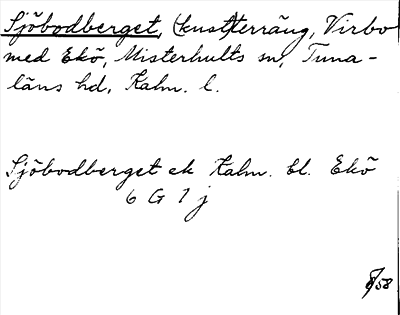 Sjöbodberget, (kust)terräng, Virbo
med Ekö, Misterhults sn, Tuna-
läns hd, Kalm. l.
Sjöbodberget ek Kalm. bl. Ekö
6 G 1 j